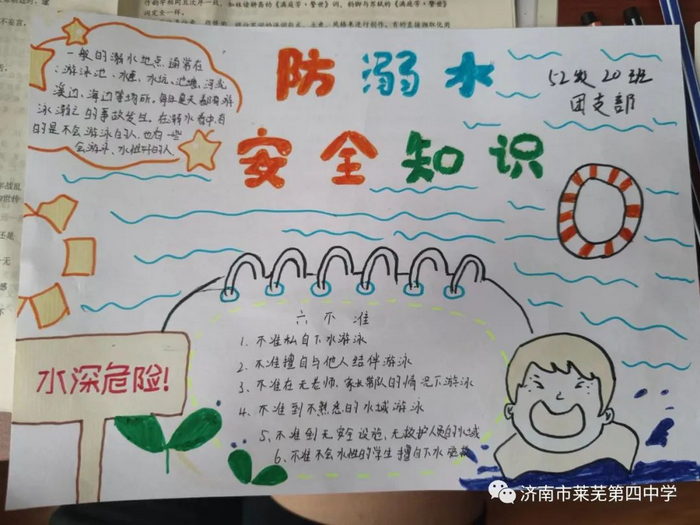 防溺水
安全知识
52级20班
团支部
一般的溺水地点通常在
游泳池、水库、水坑、池塘、河流
溪边、海边等场所。每年夏天都有游
泳溺亡的事故发生。在溺水者中,有
的是不会游泳的人,也有一些
会游泳、水性好的人
六不准
1、不准私自下水游泳
2、不准擅自与他人结伴游泳
3、不准在无老师,家长带队的情况下游泳
4、不准到不熟悉的水域游泳
5、不准到无安全设施、无救护人员的水域
6、不准不会水性的学生擅自下水施救
水深危险!
济南市莱芜第四中学